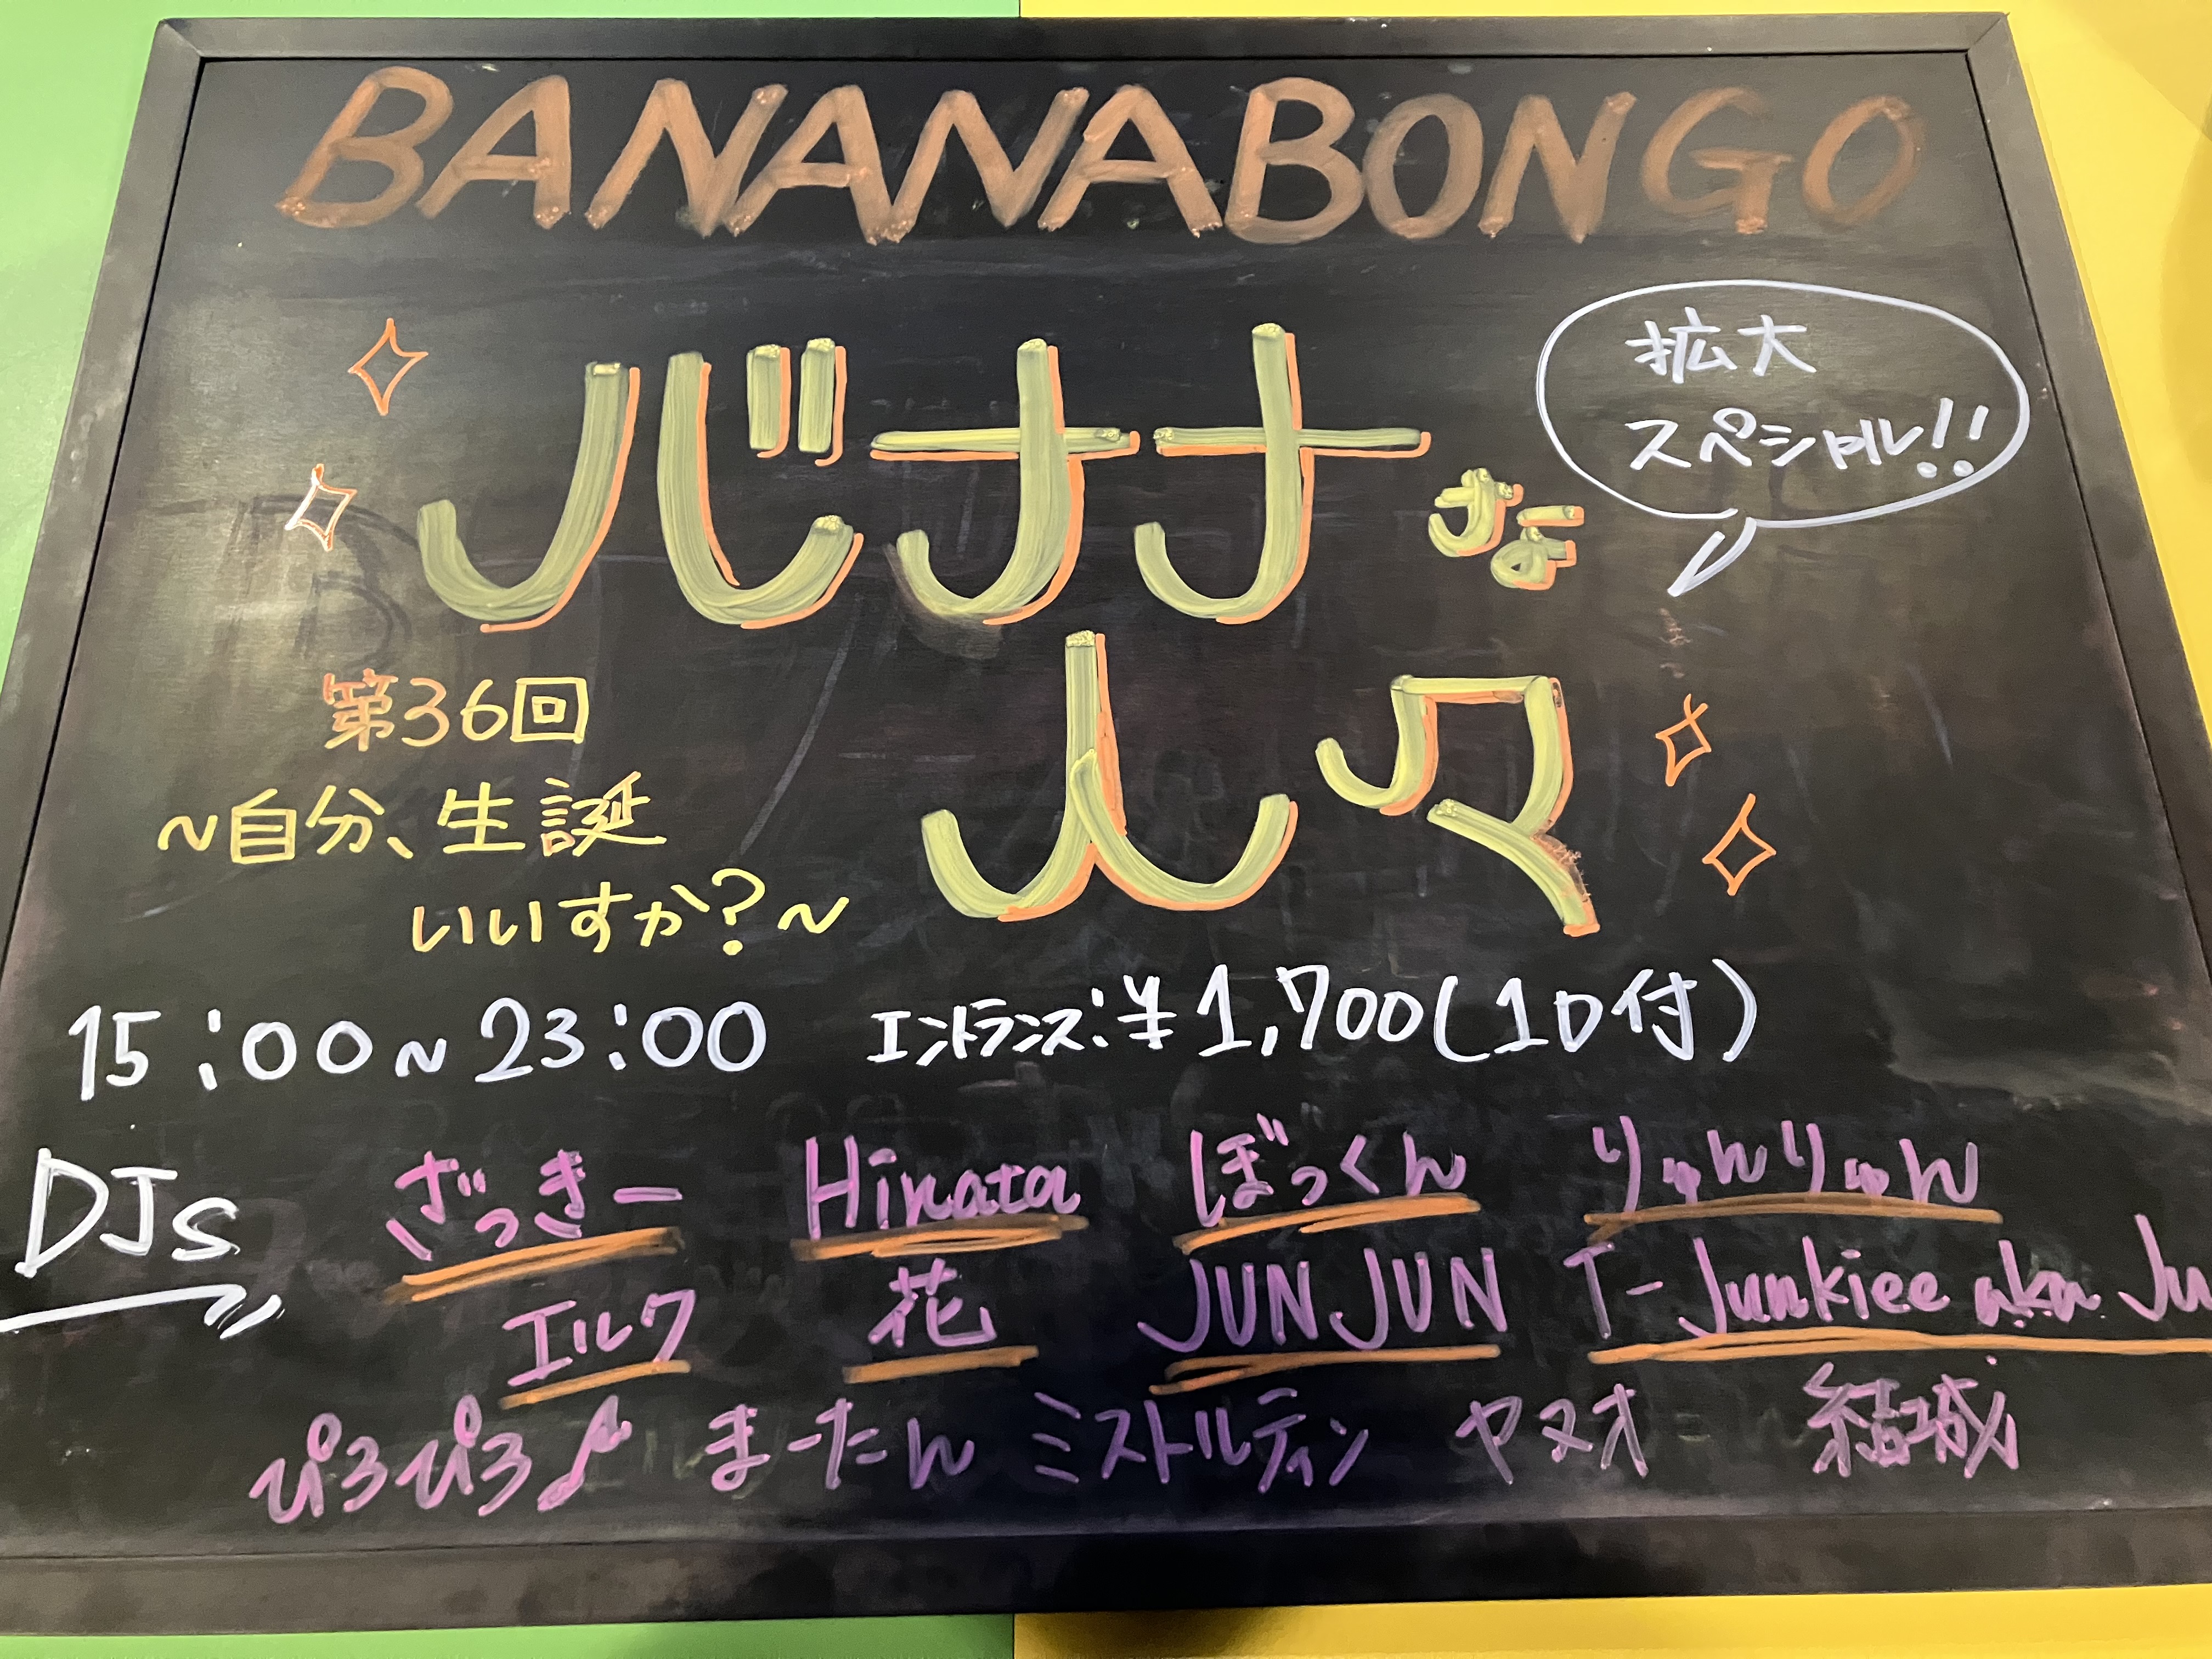 BANANABONGO
拡大
スペシャル!!
バナナな
人々
第36回
~自分、生誕
いいすか?~
15:00~23:00 エントランス:¥1,700(1D付)
DJs ざっきー Hinata ぼっくん りゅんりゅん
エルク 花 JUNJUN T-Junkiee aka Ju
ぴろぴろ♪ まーたん ミストルティン ヤヌオ 結城